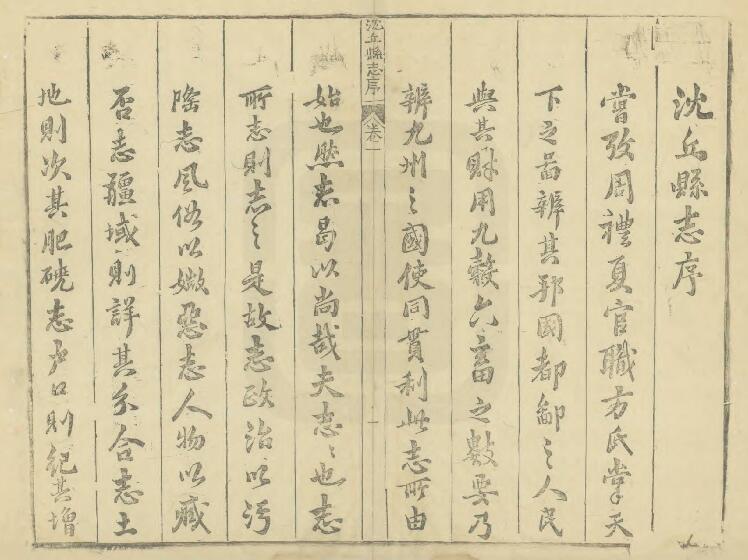 沈丘縣志序
嘗攷周禮夏官職方氏掌天
下之啚辨其邦國都鄙之人民
與其財用九穀六畜之數要乃
辨九州之國使同貫利此志所由
沈丘縣志序 卷一 一
始也然志曷以尚哉夫志志也志
所志則志之是故志政治以污
隆志風俗以媺惡志人物以臧
否志疆域則詳其分合志土
地則次其肥磽志戶口則紀其增